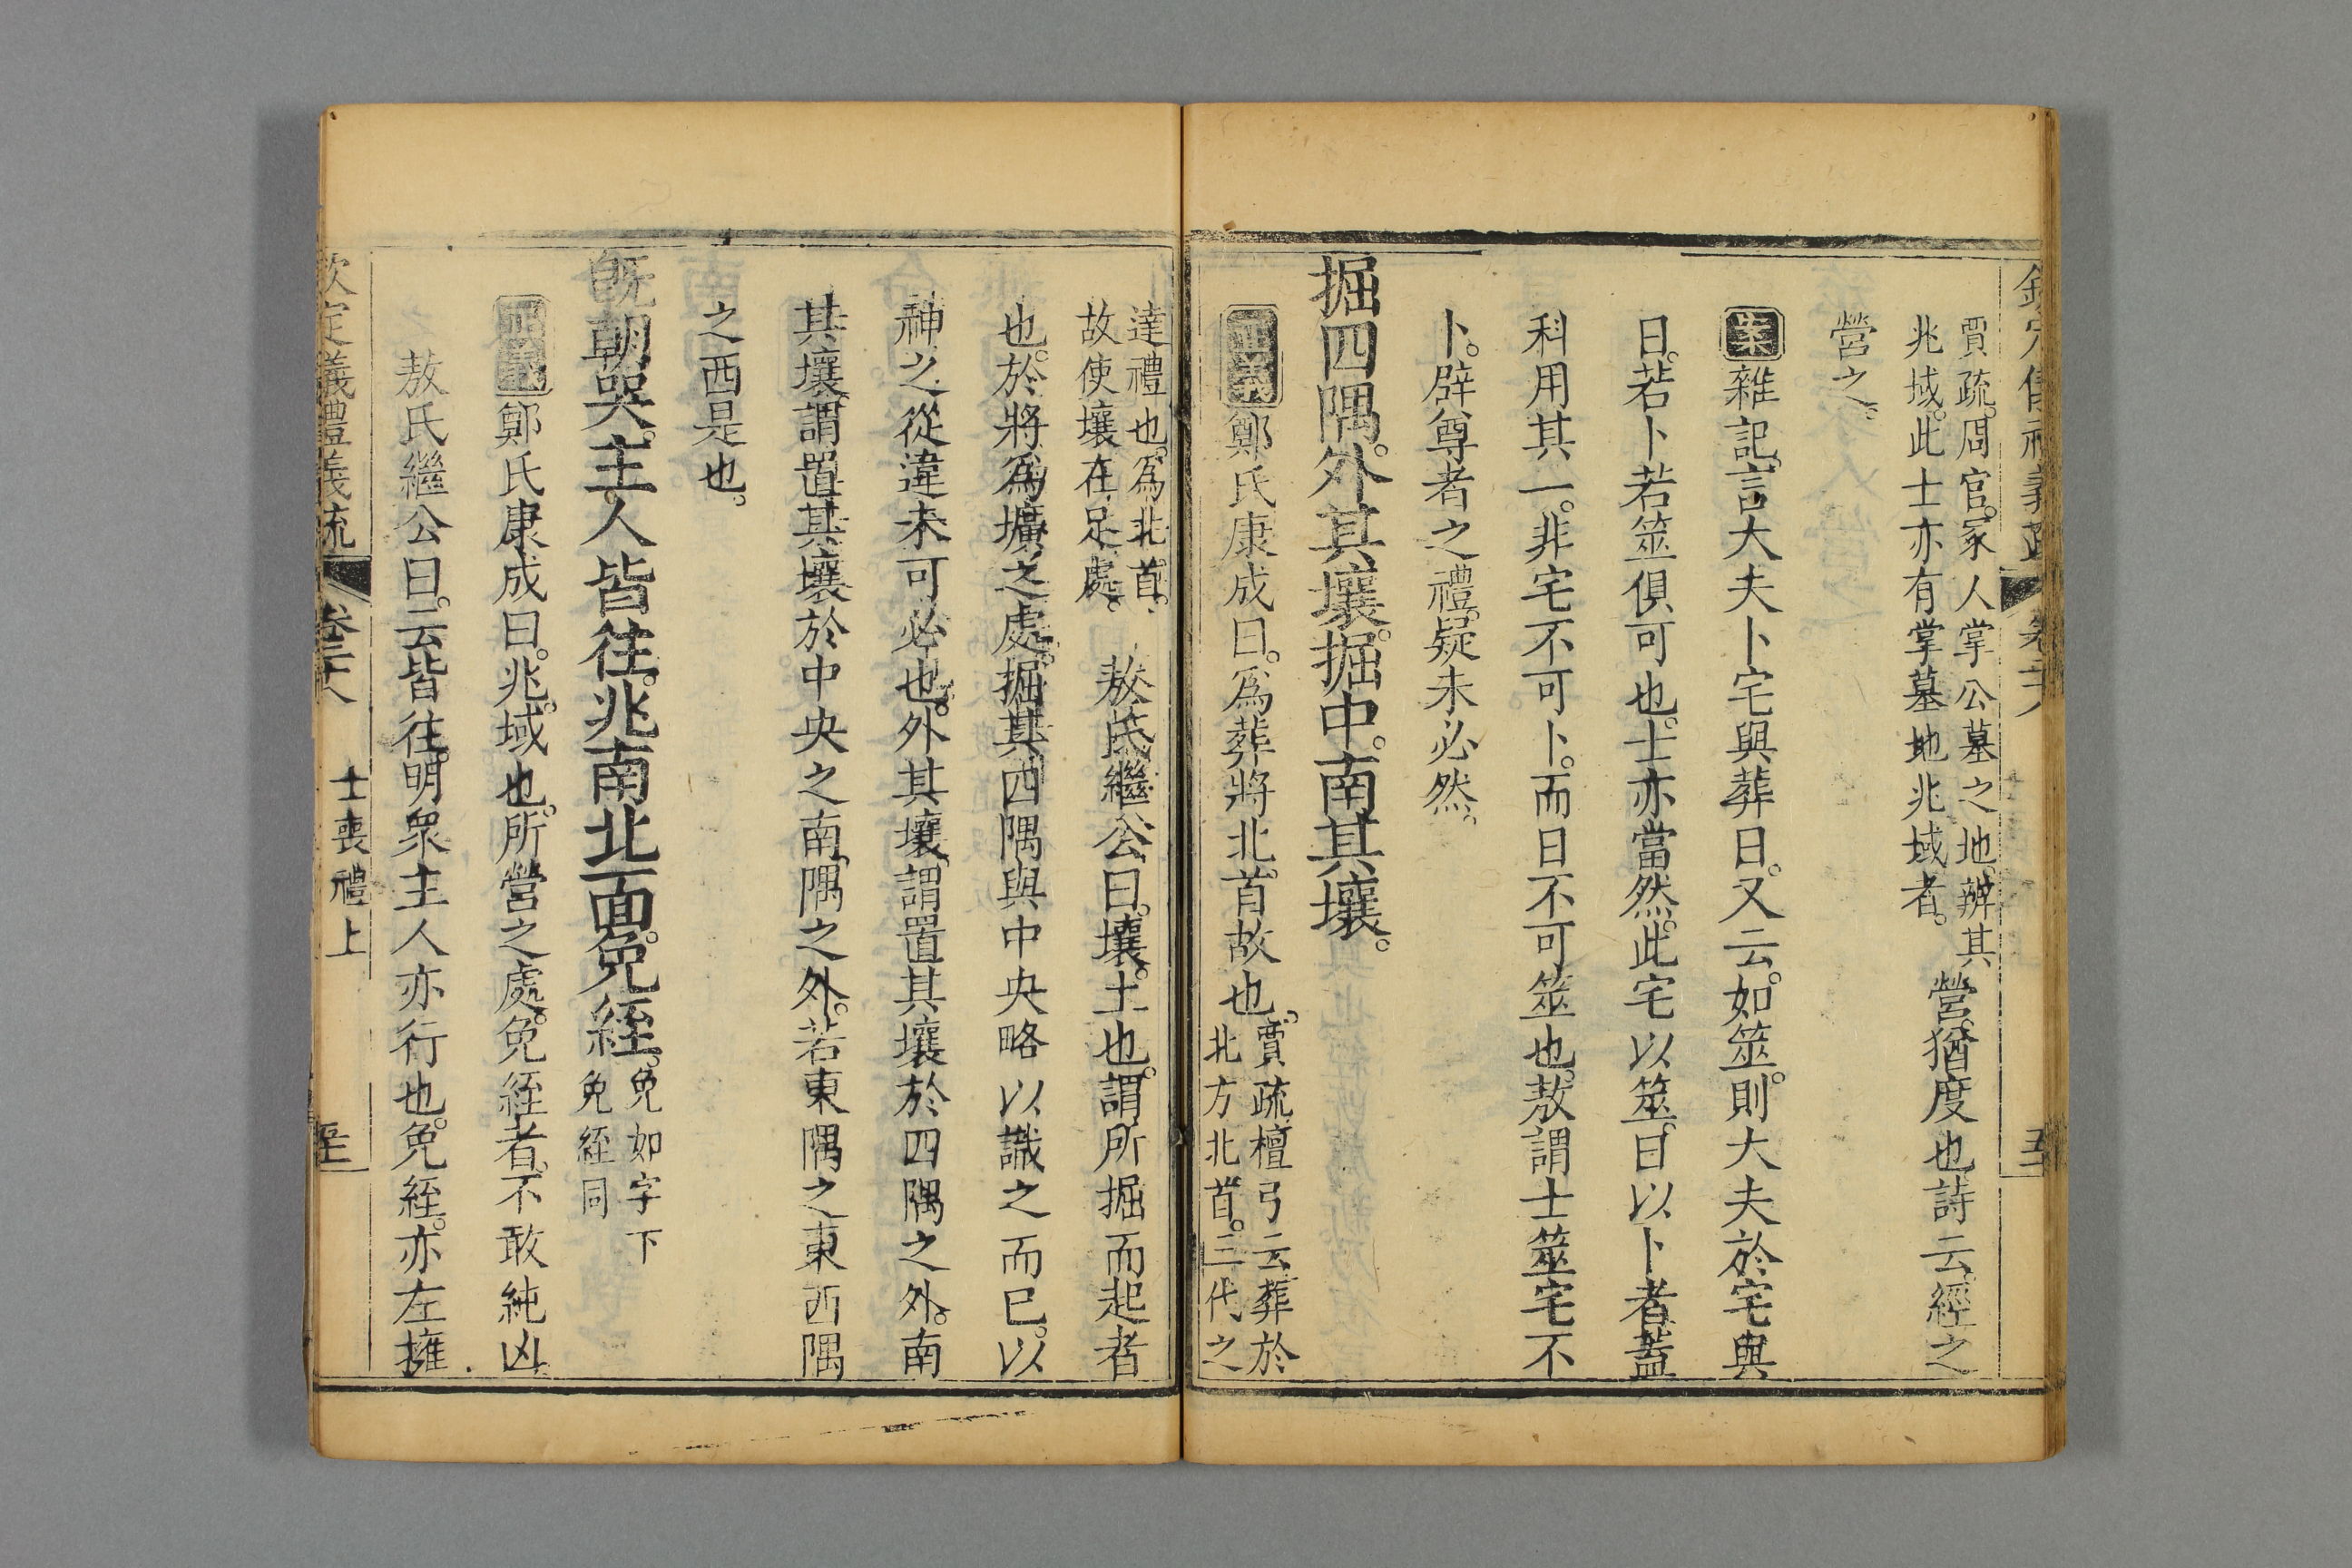 賈疏。周官。冢人掌公墓之地。辨其
兆域。此士亦有掌墓地兆域者。
營。猶度也。詩云。經之
營之。
案雜記。言大夫卜宅與葬日。又云。如筮。則大夫於宅與
日。若卜若筮俱可也。士亦當然。此宅以筮。日以卜者。蓋
科用其一。非宅不可卜。而日不可筮也。敖謂士筮宅不
卜。辟尊者之禮。疑未必然。
掘四隅。外其壤。掘中。南其壤。
正義鄭氏康成曰。爲葬將北首故也。
賈疏。檀弓云。葬於
北方北首。三代之
達禮也。爲北首。
故使壤在足處。
敖氏繼公曰。壤。土也。謂所掘而起者
也。於將爲壙之處。掘其四隅與中央。略以識之而已。以
神之從違未可必也。外其壤。謂置其壤於四隅之外。南
其壤。謂置其壤於中央之南。隅之外。若東隅之東。西隅
之西是也。
既朝哭。主人皆往。兆南北面。免絰。
免如字下
免絰同
正義鄭氏康成曰。兆。域也。所營之處。免絰者。不敢純凶
敖氏繼公曰。云皆往。明眾主人亦行也。免絰。亦左擁
欽定儀禮義疏 卷二十八 士喪禮上